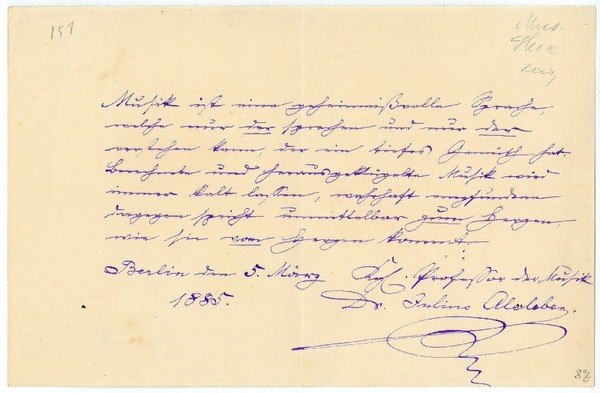 151
Mus.
Musik ist eine geheimnißvolle Sprache,
welche nur der sprechen und nur der
verstehen kann, der ein tiefes Gemüth hat.
Berechnete und herausgeklügelte Musik wird
immer kalt lassen, wahrhaft empfundene
dagegen spricht unmittelbar zum Herzen,
wie sie vom Herzen kommt.
Berlin den 5. März Kgl. Professor der Musik
1885. Dr. Julius Alsleben.